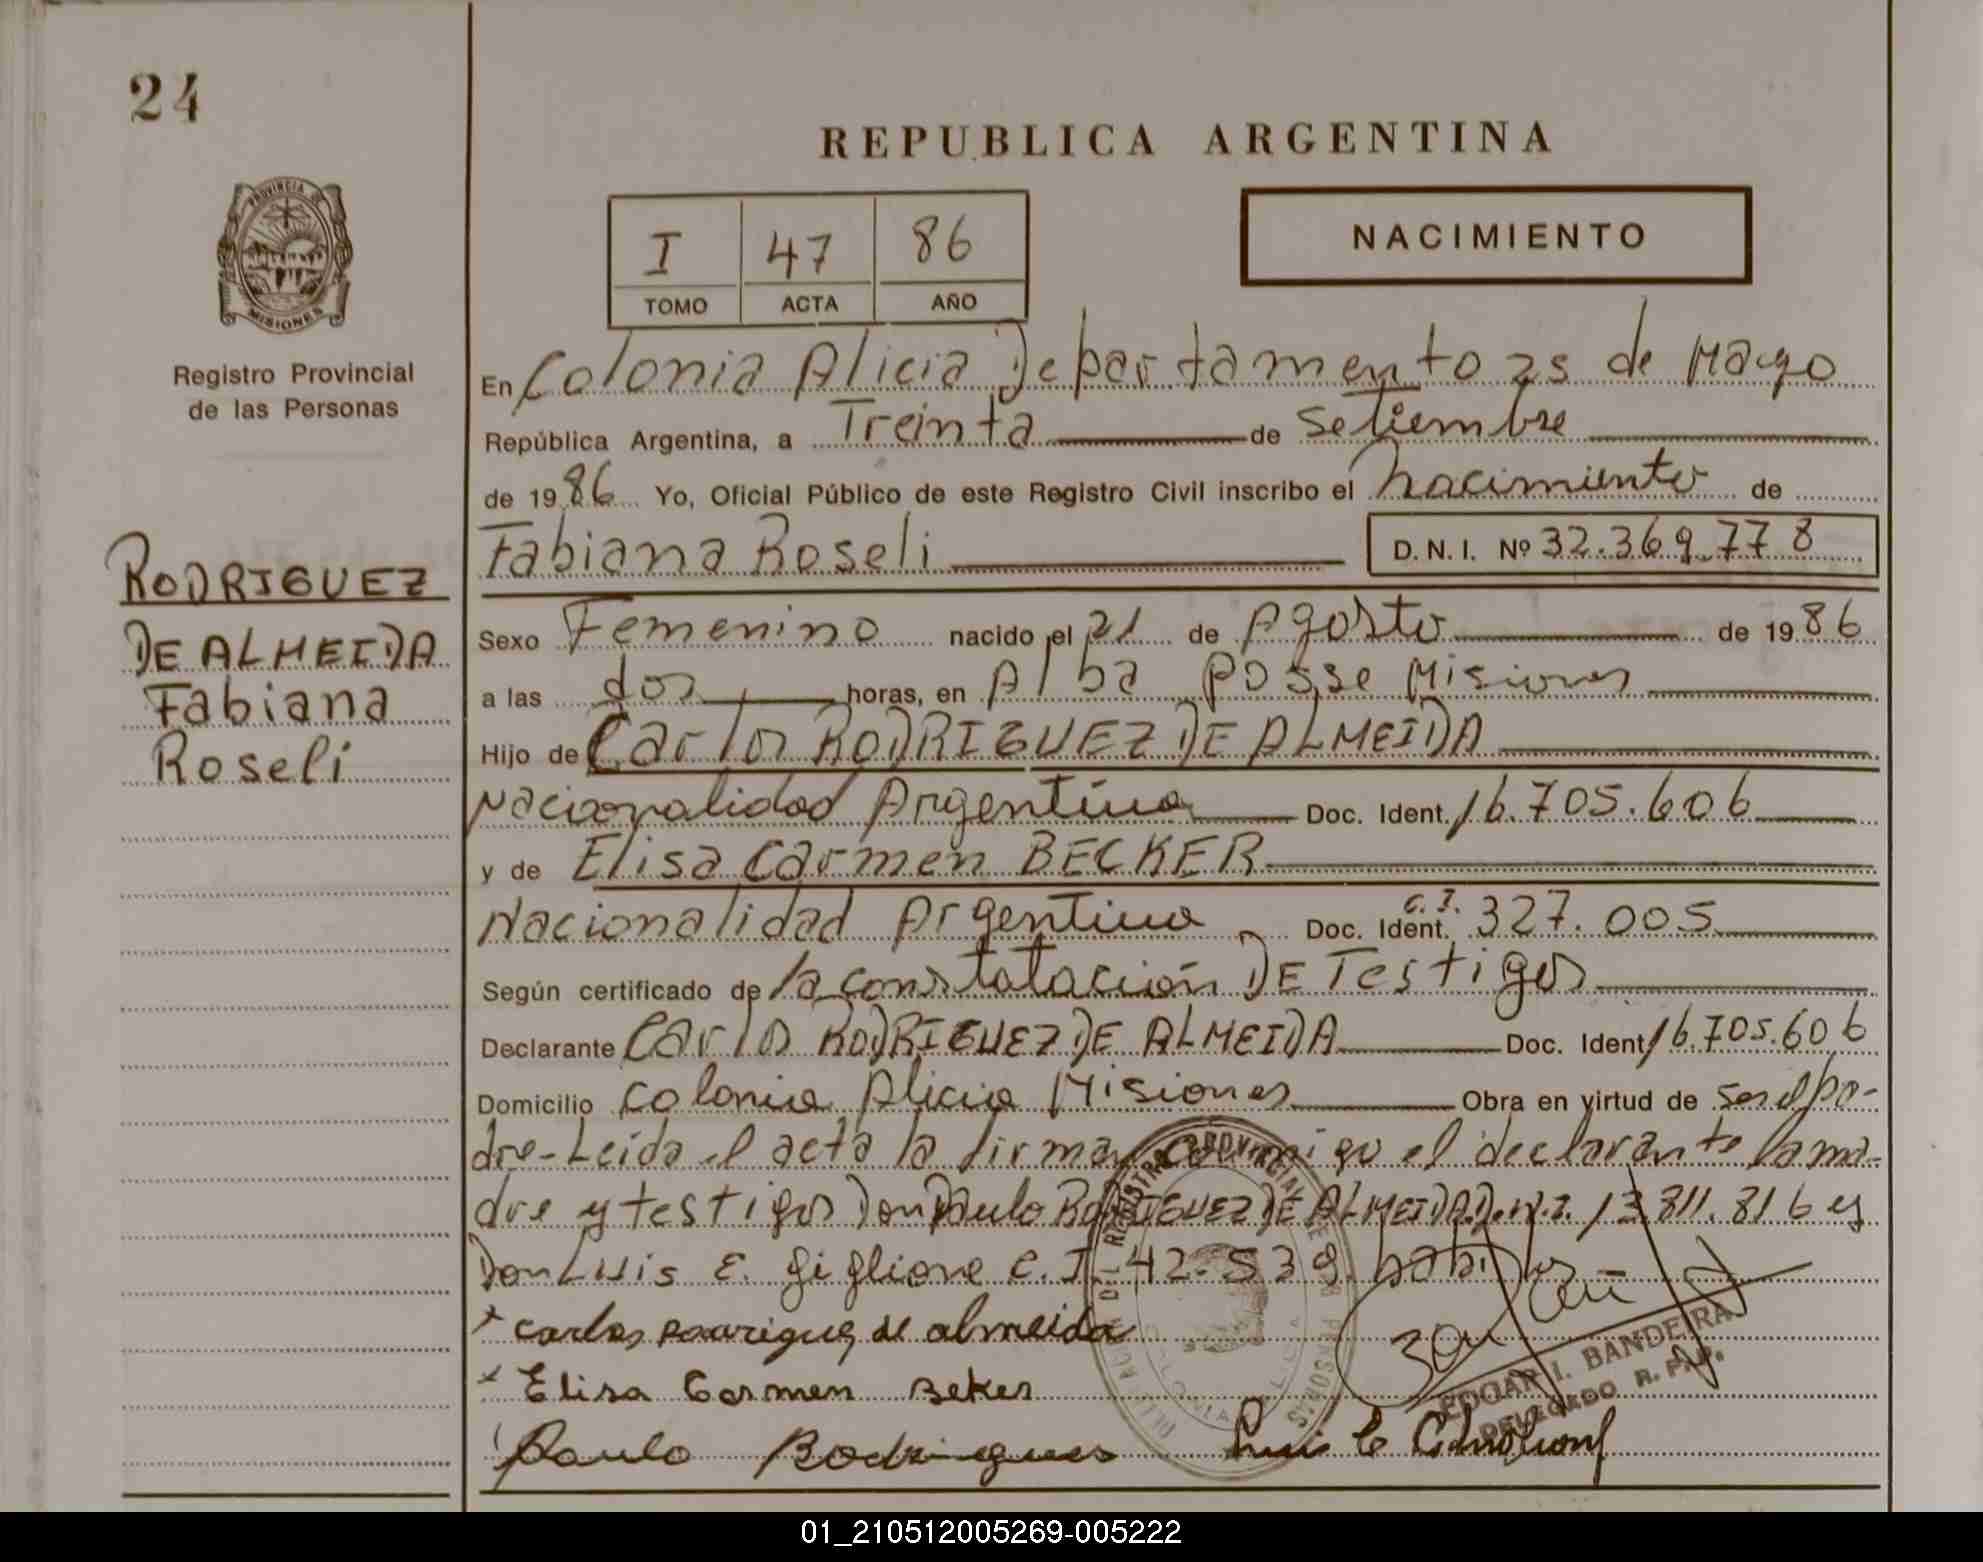 24
REPUBLICA ARGENTINA
PROVINCIA DE
MISIONES
Registro Provincial
de las Personas
I 47 86
TOMO ACTA AÑO
NACIMIENTO
RODRIGUEZ
DE ALMEIDA
Fabiana
Roseli
En Colonia Alicia Departamento 25 de Mayo
República Argentina, a Treinta de Setiembre
de 1986 Yo, Oficial Público de este Registro Civil inscribo el nacimiento de
Fabiana Roseli D.N.I. Nº 32.369.778
Sexo Femenino nacido el 21 de Agosto de 1986
a las dos horas, en Alba Posse Misiones
Hijo de Carlos RODRIGUEZ DE ALMEIDA
Nacionalidad Argentina Doc. Ident. 16.705.606
y de Elisa Carmen BECKER
Nacionalidad Argentina Doc. Ident. C.I. 327.005
Según certificado de la constatación DE Testigos
Declarante Carlos RODRIGUEZ DE ALMEIDA Doc. Ident 16.705.606
Domicilio Colonia Alicia Misiones Obra en virtud de ser el pa-
dre-Leida el acta la firman conmigo el declarante la ma-
dre y testigos Don Paulo RODRIGUEZ DE ALMEIDA D.N.I. 13.811.816 y
Don Luis E. Giglione C.I. 42.539
carlos rodrigues de almeida
Elisa Carmen Beker
Paulo Rodrigues
EDGAR I. BANDEIRA
DELEGADO R. P. P.
01_210512005269-005222